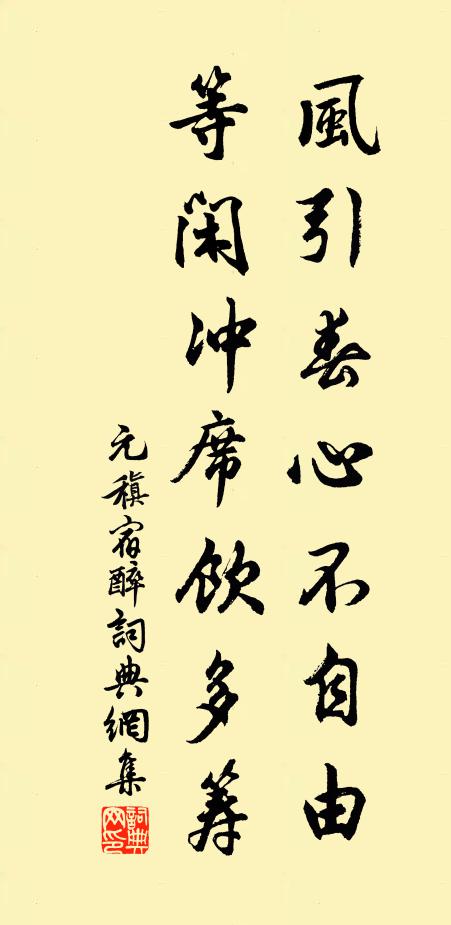 風引春心不自由
等閑冲席飲多筹
元稹宿醉詞典網集
詞典
网印